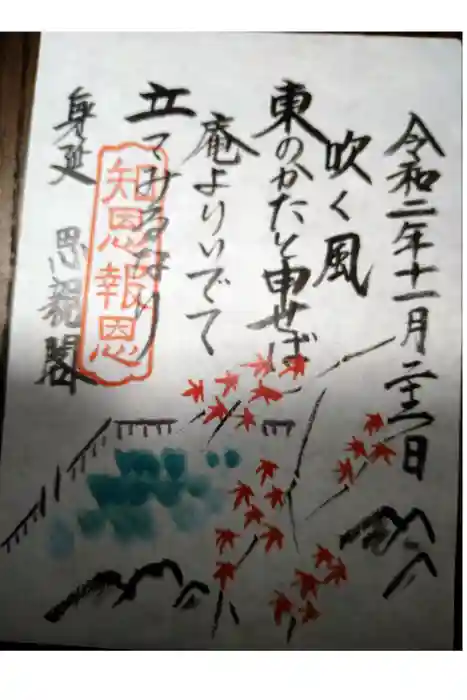 令和二年十一月二十六日
吹く風
東のかたと申せば
庵よりいでて
立てみるなり
身延 恩親閣
知恩報恩